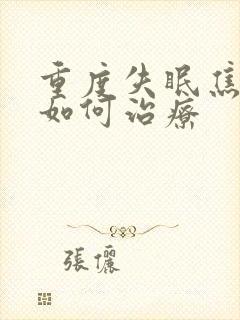 重度失眠焦
如何治療
張儷